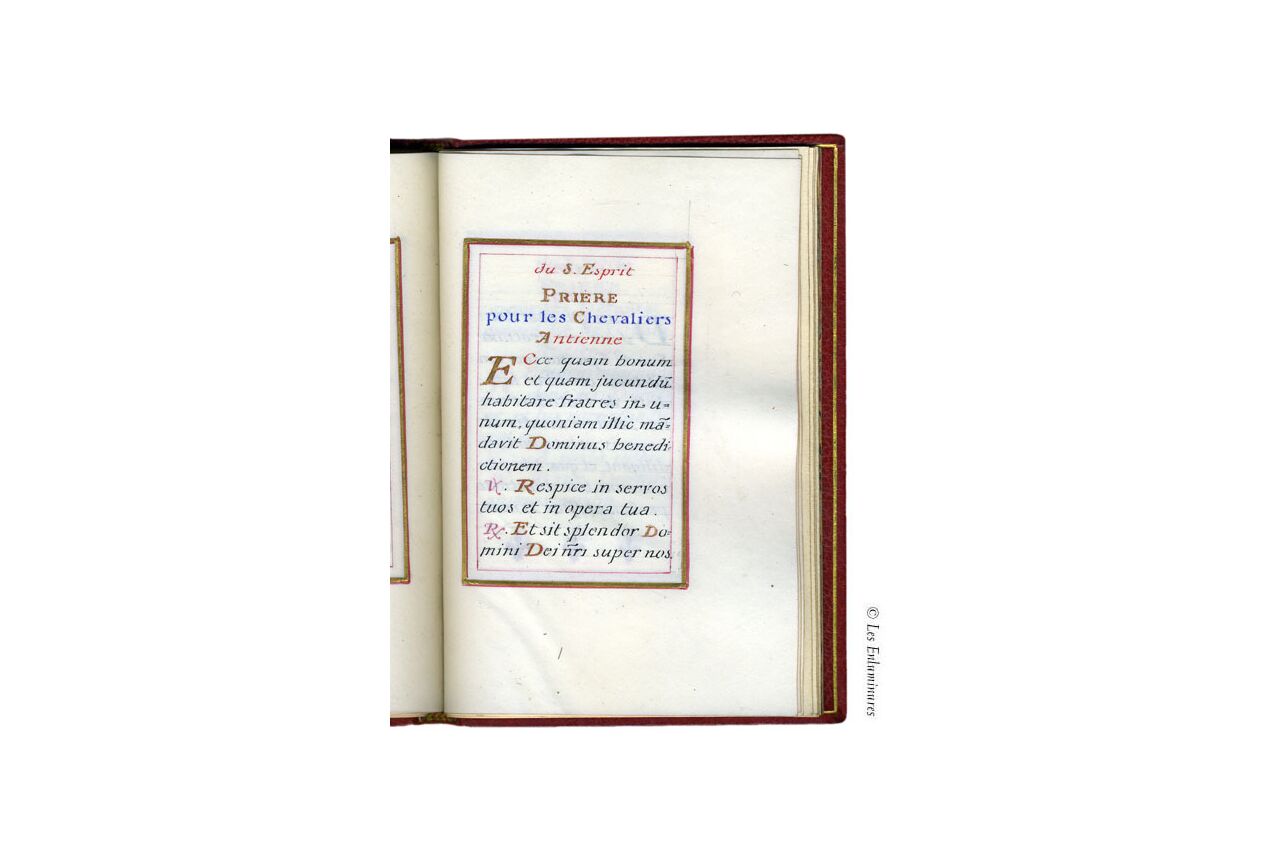 du S. Esprit
PRIÈRE
pour les Chevaliers
Antienne
ECce quam bonum
et quam jucundū
habitare fratres in u=
num, quoniam illic mā=
davit Dominus benedi=
ctionem.
℣. Respice in servos
tuos et in opera tua.
℟. Et sit splendor Do=
mini Dei nr̄i super nos
© Les Enluminures